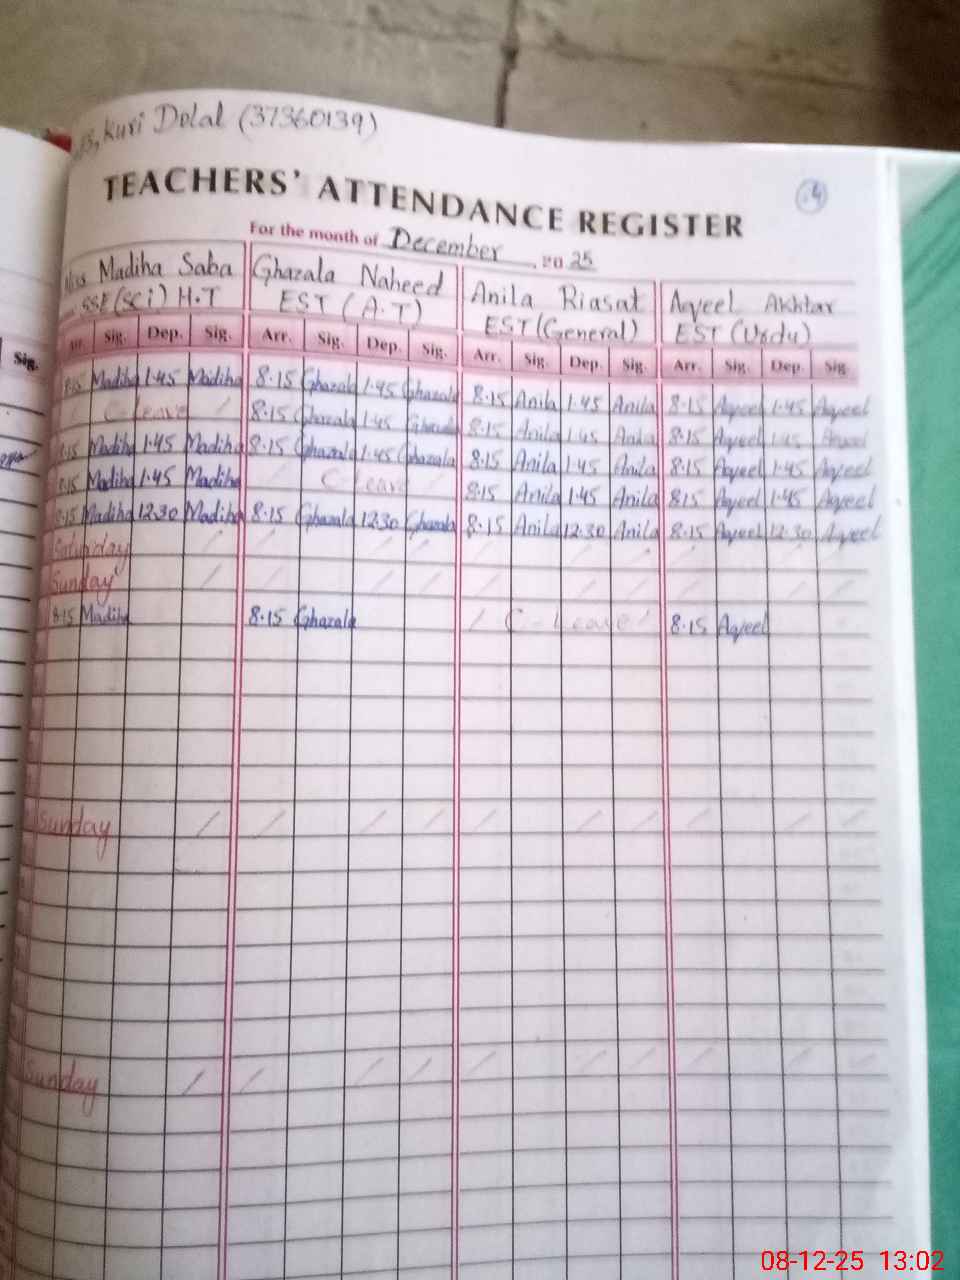 Kuri Dolal (37360139)
TEACHERS' ATTENDANCE REGISTER
4
For the month of December 2025
Miss Madiha Saba Ghazala Naheed Anila Riasat Aqeel Akhtar
SSE(SCi) H.T EST (A.T) EST(General) EST (Urdu)
Sig. Arr. Sig. Dep. Sig. Arr. Sig. Dep. Sig. Arr. Sig. Dep. Sig. Arr. Sig. Dep. Sig.
8.15 Madiha 1.45 Madiha 8.15 Ghazala 1.45 Ghazala 8.15 Anila 1.45 Anila 8.15 Aqeel 1.45 Aqeel
/ C-Leave / 8.15 Ghazala 1.45 Ghazala 8.15 Anila 1.45 Anila 8.15 Aqeel 1.45 Aqeel
8.15 Madiha 1.45 Madiha 8.15 Ghazala 1.45 Ghazala 8.15 Anila 1.45 Anila 8.15 Aqeel 1.45 Aqeel
8.15 Madiha 1.45 Madiha / C-Leave / 8.15 Anila 1.45 Anila 8.15 Aqeel 1.45 Aqeel
8.15 Madiha 12.30 Madiha 8.15 Ghazala 12.30 Ghazala 8.15 Anila 12.30 Anila 8.15 Aqeel 12.30 Aqeel
Saturday
Sunday
8.15 Madiha 8.15 Ghazala / C-Leave / 8.15 Aqeel
Sunday
Sunday
08-12-25 13:02